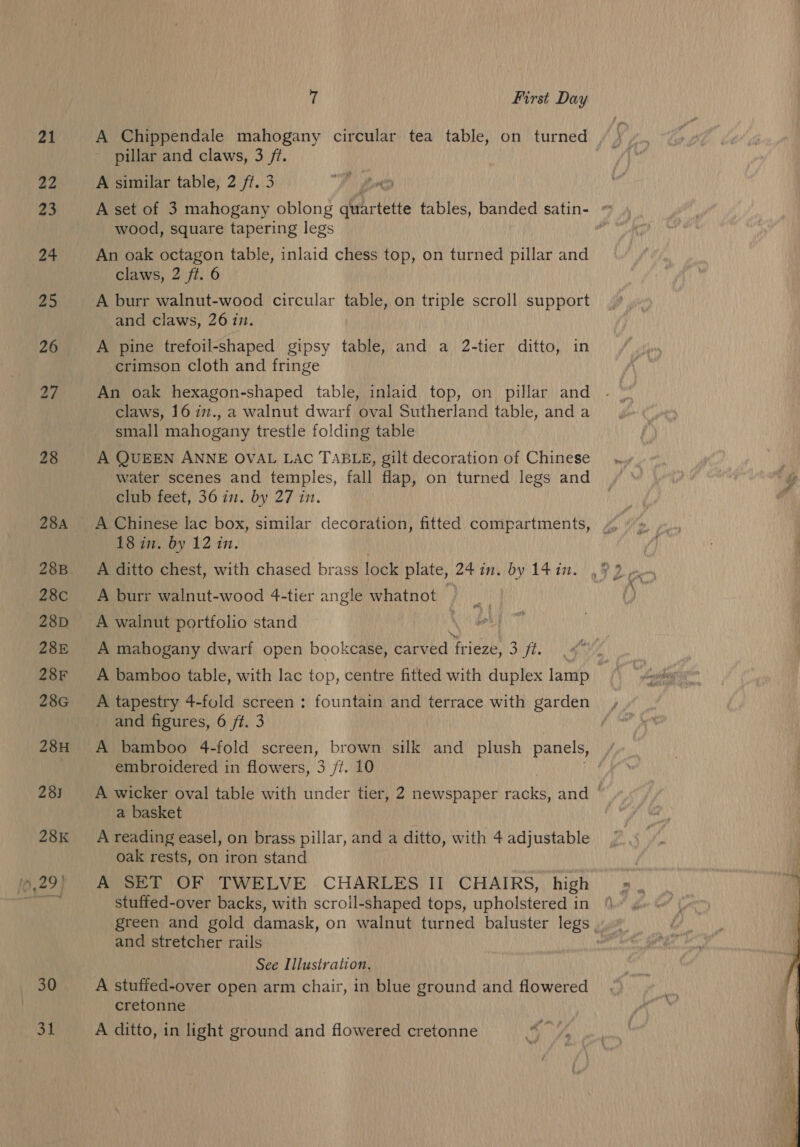 7 First Day
21 A Chippendale mahogany circular tea table, on turned
pillar and claws, 3 ft.
22 A similar table, 2 ft. 3
23 A set of 3 mahogany oblong quartette tables, banded satin-
wood, square tapering legs
24 An oak octagon table, inlaid chess top, on turned pillar and
claws, 2 ft. 6
25 A burr walnut-wood circular table, on triple scroll support
and claws, 26 in.
26 A pine trefoil-shaped gipsy table, and a 2-tier ditto, in
crimson cloth and fringe
27 An oak hexagon-shaped table, inlaid top, on pillar and
claws, 16 in., a walnut dwarf oval Sutherland table, and a
small mahogany trestle folding table
28 A QUEEN ANNE OVAL LAC TABLE, gilt decoration of Chinese
water scenes and temples, fall flap, on turned legs and
club feet, 36 in. by 27 in.
28A A Chinese lac box, similar decoration, fitted compartments,
18 in. by 12 in.
28B A ditto chest, with chased brass lock plate, 24 in. by 14 in.
28C A burr walnut-wood 4-tier angle whatnot
28D A walnut portfolio stand
28E A mahogany dwarf open bookcase, carved frieze, 3 ft.
28F A bamboo table, with lac top, centre fitted with duplex lamp
28G A tapestry 4-fold screen : fountain and terrace with garden
and figures, 6 ft. 3
28H A bamboo 4-fold screen, brown silk and plush panels,
embroidered in flowers, 3 ft. 10
28J A wicker oval table with under tier, 2 newspaper racks, and
a basket
28K A reading easel, on brass pillar, and a ditto, with 4 adjustable
oak rests, on iron stand
29 A SET OF TWELVE CHARLES II CHAIRS, high
stuffed-over backs, with scroll-shaped tops, upholstered in
green and gold damask, on walnut turned baluster legs
and stretcher rails
See Illustration.
30 A stuffed-over open arm chair, in blue ground and flowered
cretonne
31 A ditto, in light ground and flowered cretonne